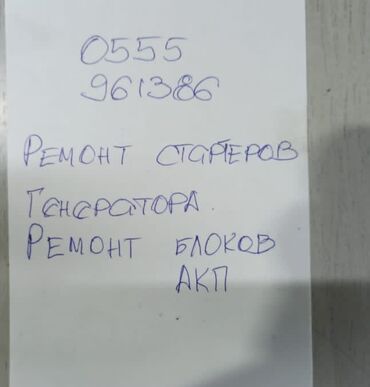 0555
961386
РЕМОНТ СТАРТЕРОВ
ГЕНЕРАТОРА.
РЕМОНТ БЛОКОВ
АКП